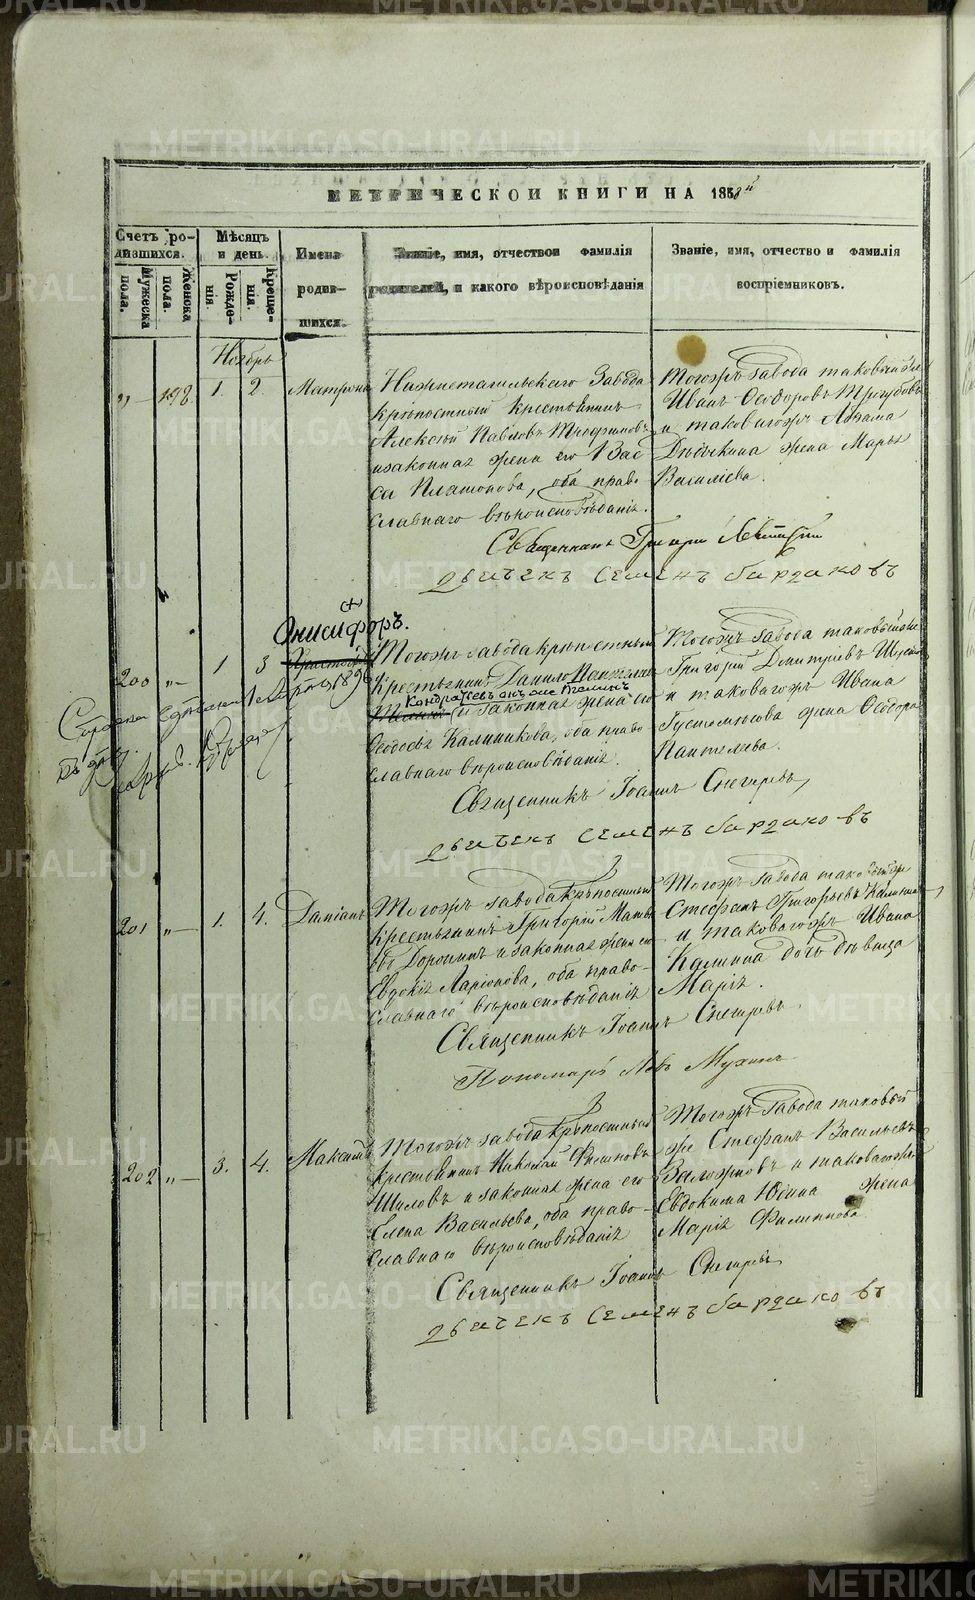 METRIKI.GASO-URAL.RU
МЕТРИЧЕСКОЙ КНИГИ НА 1858й
Счетъ родившихся.
Мужеска пола.
Женска пола.
Мѣсяцъ и день.
Рожденія.
Крещенія.
Имена родившихся.
Званіе, имя, отчество и фамилія
родителей, и какого вѣроисповѣданія
Званіе, имя, отчество и фамилія
воспріемниковъ.
Ноябрь
„ 198. 1. 2. Матрона
Нижнетагильскаго Завода
крѣпостный крестьянинъ
Алексѣй Павловъ Трофимовъ
и законная жена его Вас
са Платонова, оба право
славнаго вѣроисповѣданія.
Тогожъ завода таковый же
Иванъ Ѳеодоровъ Трегубовъ
и таковагожъ
жена Марья
Василіева.
Священникъ Григорій
Дьячекъ Семенъ Бардаковъ
200 „ 1 3
Онисифоръ.
Тогожъ завода крѣпостный
Крестьянинъ Данило
Кондратьевъ онъ же
и законная жена его
Ѳеодосья Калиникова, оба право
славнаго вѣроисповѣданія.
Тогожъ завода таковый же
Григорій Дмитріевъ
и таковагожъ Ивана
Густомѣсова жена Ѳеодора
Пантелеева.
1896
Священникъ Іоаннъ Снегиревъ
Дьячекъ Семенъ Бардаковъ
201 „ 1. 4. Даміанъ
Тогожъ завода Крѣпостный
крестьянинъ Григорій Матвѣ
евъ Доронинъ и законная жена его
Евдокія Ларіонова, оба право-
славнаго вѣроисповѣданія
Тогожъ Завода таковый же
Стефанъ Григорьевъ Калинин
и таковагожъ Ивана
Калинина дочь дѣвица
Марія.
Священникъ Іоаннъ Снегиревъ
Пономарь Левъ Мухинъ
202 „ 3. 4. Максимъ
Тогожъ завода крѣпостный
крестьянинъ Николай
Шиловъ и законная жена его
Елена Васильева, оба право-
славнаго вѣроисповѣданія
Тогожъ Завода таковый
же Стефанъ Васильевъ
и таковагожъ
Евдокима Юдина жена
Марія Филиппова
Священникъ Іоаннъ Снегиревъ
Дьячекъ Семенъ Бардаковъ